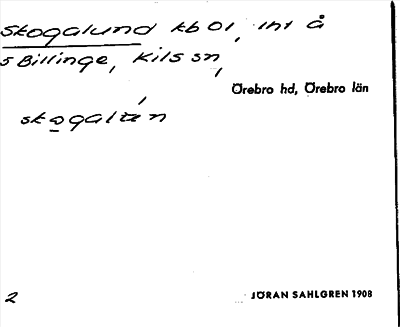 Skogalund kb Ol, int å
s Billinge, Kils sn,
Örebro hd, Örebro län
skogalún
2
JÖRAN SAHLGREN 1908